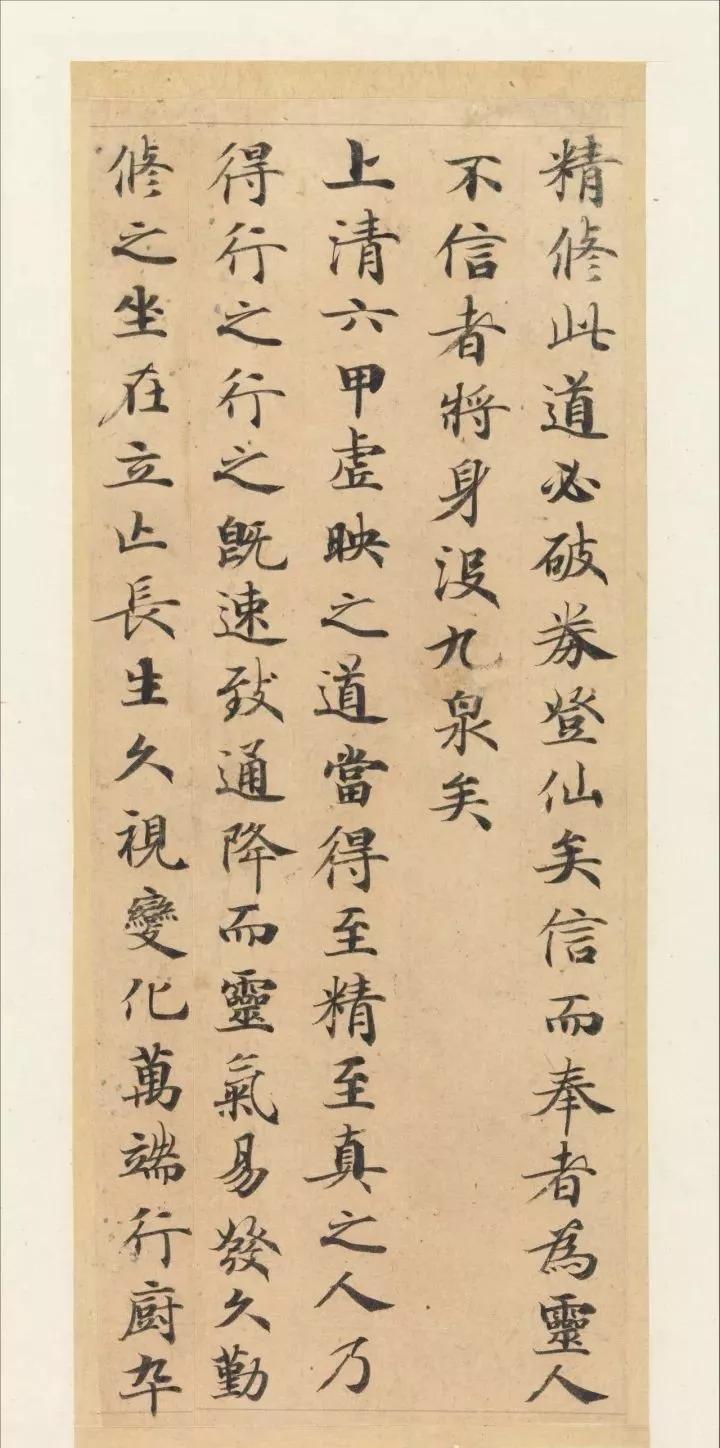 精修此道必破券登仙矣信而奉者為靈人
不信者將身沒九泉矣
上清六甲虛映之道當得至精至真之人乃
得行之行之既速致通降而靈氣易發久勤
修之坐在立亾長生久視變化萬端行廚卒